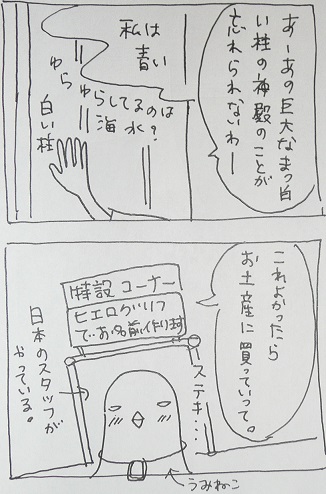 あーあの巨大なまっ白
い柱の神殿のことが
忘れられないわー
私は
青い
ゆら
ゆらしてるのは
海水？
白い柱
これよかったら
お土産に買っていって。
特設コーナー
ヒエログリフ
でお名前作ります
ステキ…
日本のスタッフが
やっている。
うみねこ